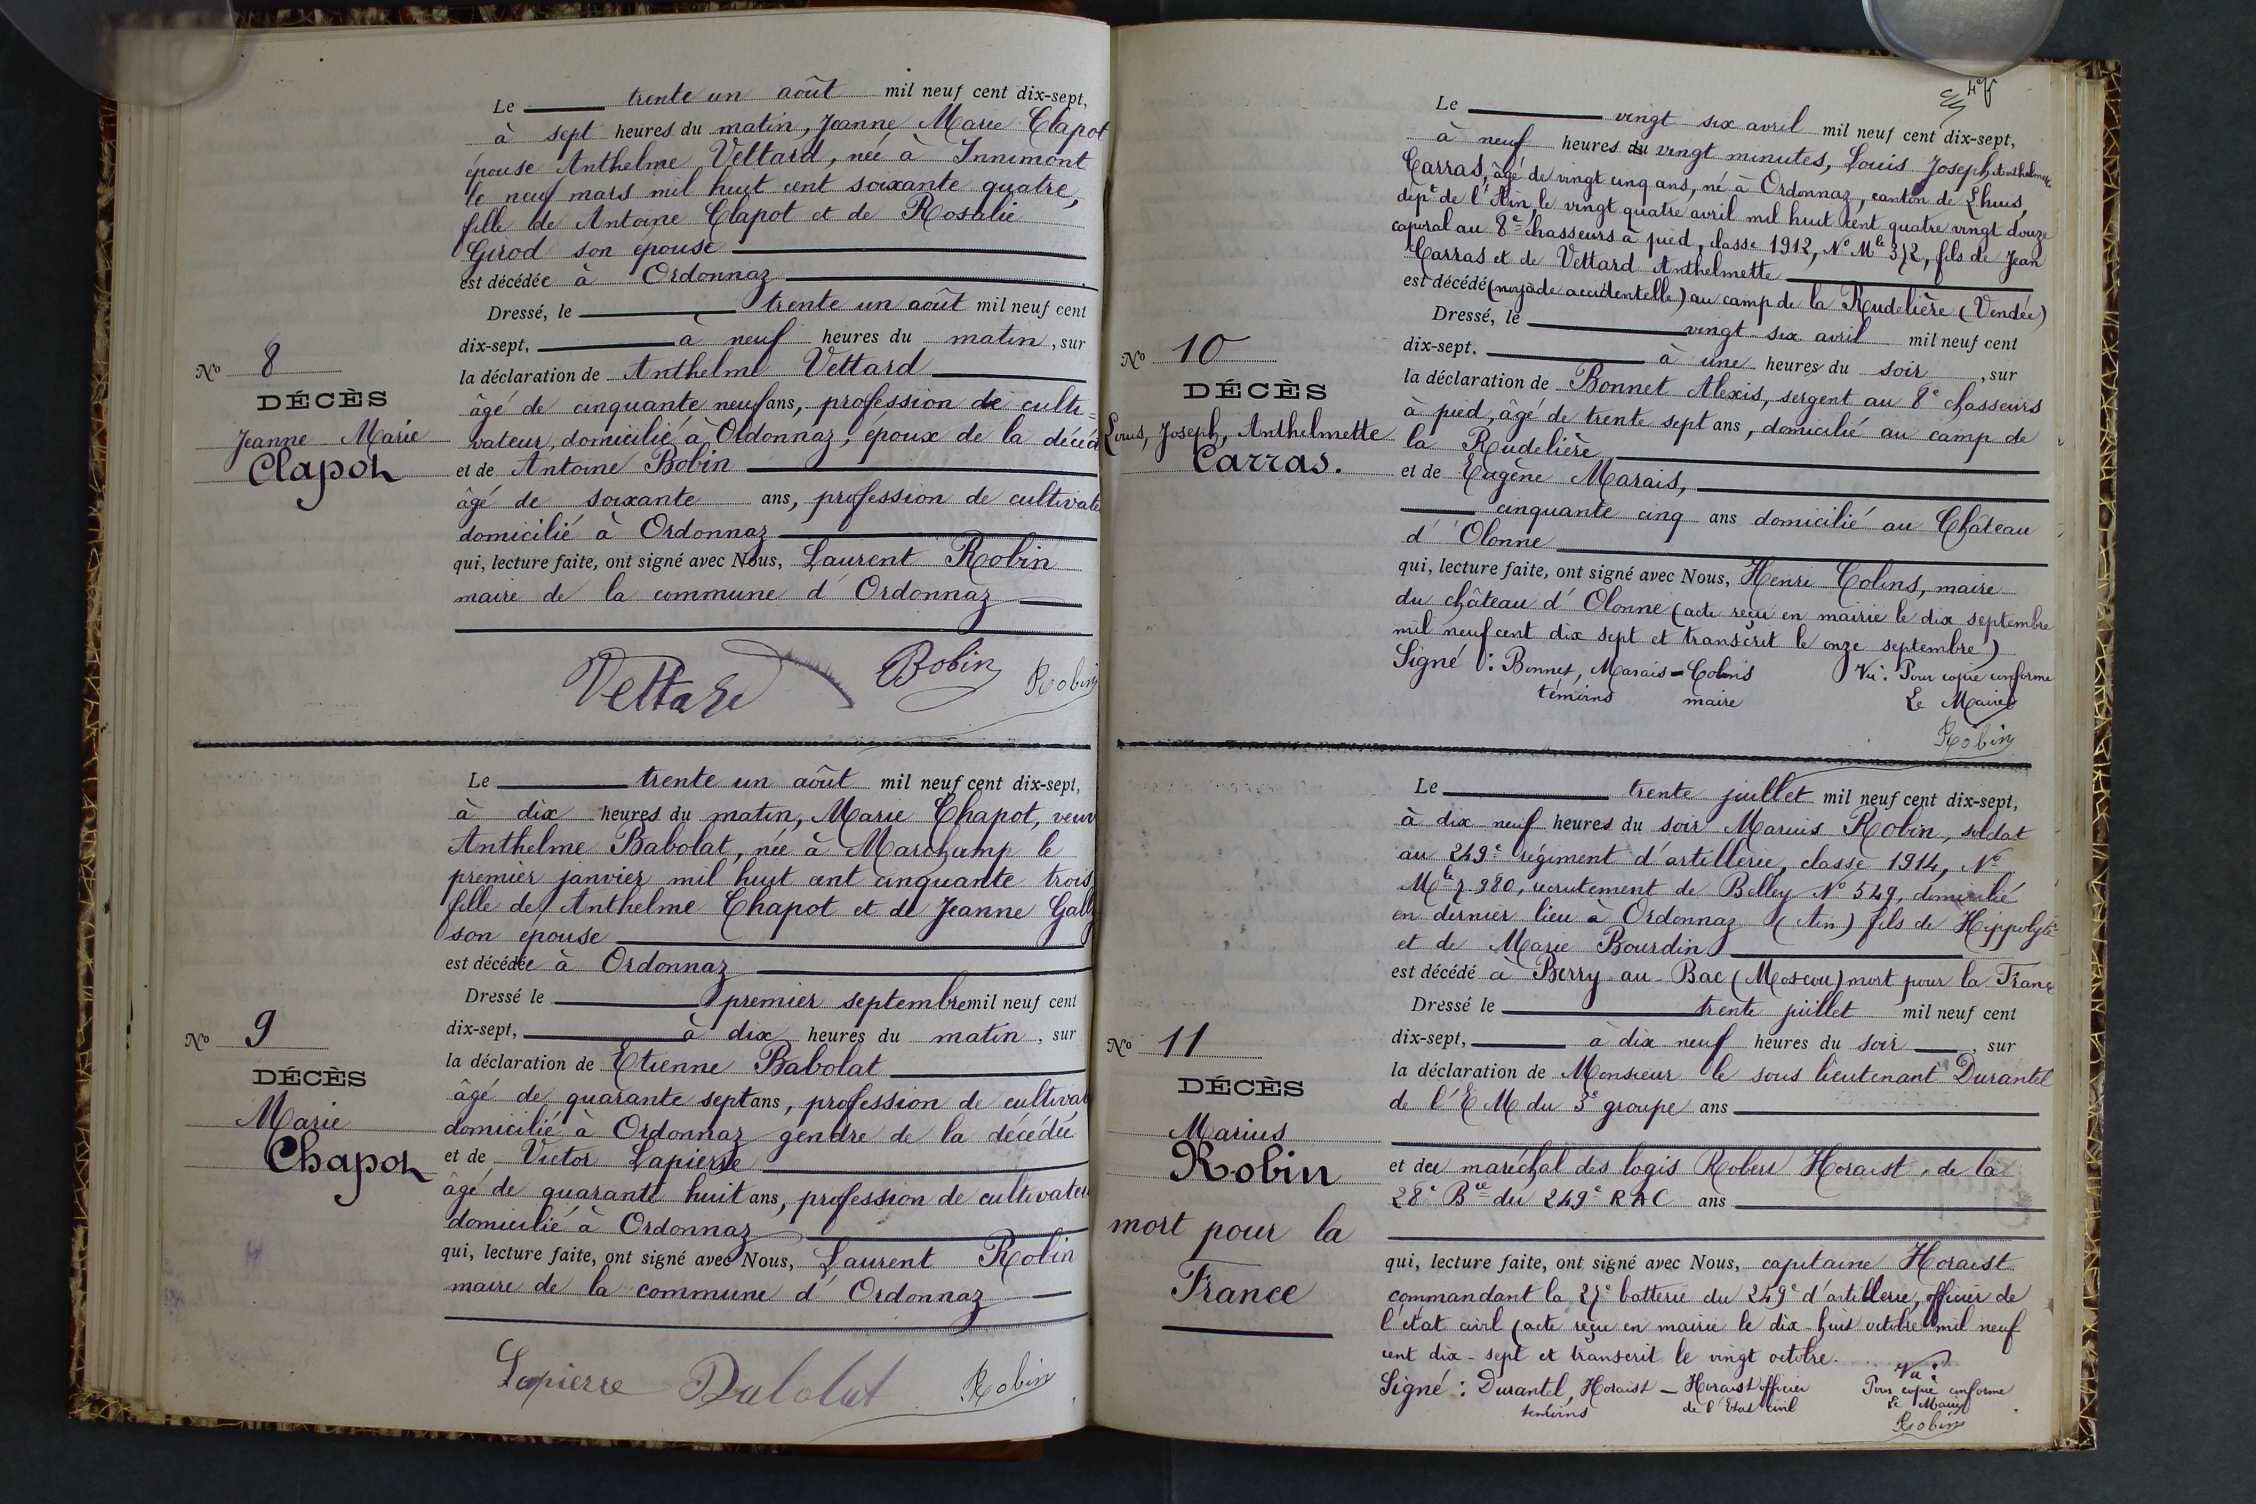 Le trente un août mil neuf cent dix-sept,
à sept heures du matin, Jeanne Marie Clapot
épouse Anthelme Vettard, née à Innimont
le neuf mars mil huit cent soixante quatre,
fille de Antoine Clapot et de Rosalie
Girod son épouse
est décédée à Ordonnaz
Dressé, le trente un août mil neuf cent
dix-sept, à neuf heures du matin, sur
la déclaration de Anthelme Vettard
âgé de cinquante neuf ans, profession de culti=
vateur, domicilié à Ordonnaz, époux de la décéd
et de Antoine Bobin
âgé de soixante ans, profession de cultivate
domicilié à Ordonnaz
qui, lecture faite, ont signé avec Nous, Laurent Robin
maire de la commune d'Ordonnaz
Vettard Bobin Robin
No 8
DÉCÈS
Jeanne Marie
Clapot
Le trente un août mil neuf cent dix-sept,
à dix heures du matin, Marie Chapot, veuv
Anthelme Babolat, née à Marchamp le
premier janvier mil huit cent cinquante trois,
fille de Anthelme Chapot et de Jeanne
son epouse
est décédée à Ordonnaz
Dressé le premier septembre mil neuf cent
dix-sept, à dix heures du matin, sur
la déclaration de Etienne Babolat
âgé de quarante sept ans, profession de cultivat
domicilié à Ordonnaz gendre de la décédée
et de Victor Lapierre
âgé de quarante huit ans, profession de cultivateu
domicilié à Ordonnaz
qui, lecture faite, ont signé avec Nous, Laurent Robin
maire de la commune d'Ordonnaz
Lapierre Babolat Robin
No 9
DÉCÈS
Marie
Chapot
Le vingt six avril mil neuf cent dix-sept,
à neuf heures du vingt minutes, Louis Joseph Anthelmette
Carras, âgé de vingt cinq ans, né à Ordonnaz, canton de Lhuis,
dépt de l'Ain, le vingt quatre avril mil huit cent quatre vingt douze
caporal au 8e chasseurs à pied, classe 1912, No Mle 372, fils de Jean
Carras et de Vettard Anthelmette
est décédé (noyade accidentelle) au camp de la Rudelière (Vendée)
Dressé, le vingt six avril mil neuf cent
dix-sept. à une heures du soir, sur
la déclaration de Bonnet Alexis, sergent au 8e chasseurs
à pied, âgé de trente sept ans, domicilié au camp de
la Rudelière
et de Eugène Marais,
cinquante cinq ans domicilié au Château
d'Olonne
qui, lecture faite, ont signé avec Nous, Henri Colins, maire
du château d'Olonne (acte reçu en mairie le dix septembre
mil neuf cent dix sept et transcrit le onze septembre)
Signé : Bonnet, Marais - Colins Vu : Pour copie conforme
témoins maire Le Maire
Robin
No 10
DÉCÈS
Louis, Joseph, Anthelmette
Carras.
Le trente juillet mil neuf cent dix-sept,
à dix neuf heures du soir Marius Robin, soldat
au 249e régiment d'artillerie, classe 1914, No
Mle 7.980, recrutement de Belley No 549, domicilié
en dernier lieu à Ordonnaz (Ain) fils de Hippolyte
et de Marie Bourdin
est décédé à Berry-au-Bac (Moscou) mort pour la Franc
Dressé le trente juillet mil neuf cent
dix-sept, à dix neuf heures du soir, sur
la déclaration de Monsieur le sous lieutenant Durantel
de l'E M du 3e groupe ans
et du maréchal des logis Robert Horaist, de la
28e Bie du 249e RAC ans
qui, lecture faite, ont signé avec Nous, capitaine Horaist
commandant la 27e batterie du 249e d'artillerie, officier de
l'état civil (acte reçu en mairie le dix-huit octobre mil neuf
cent dix-sept et transcrit le vingt octobre.
Signé : Durantel, Horaist - Horaist officier Vu : Pour copie conforme
témoins de l'Etat civil Le Maire
Robin
No 11
DÉCÈS
Marius
Robin
mort pour la
France